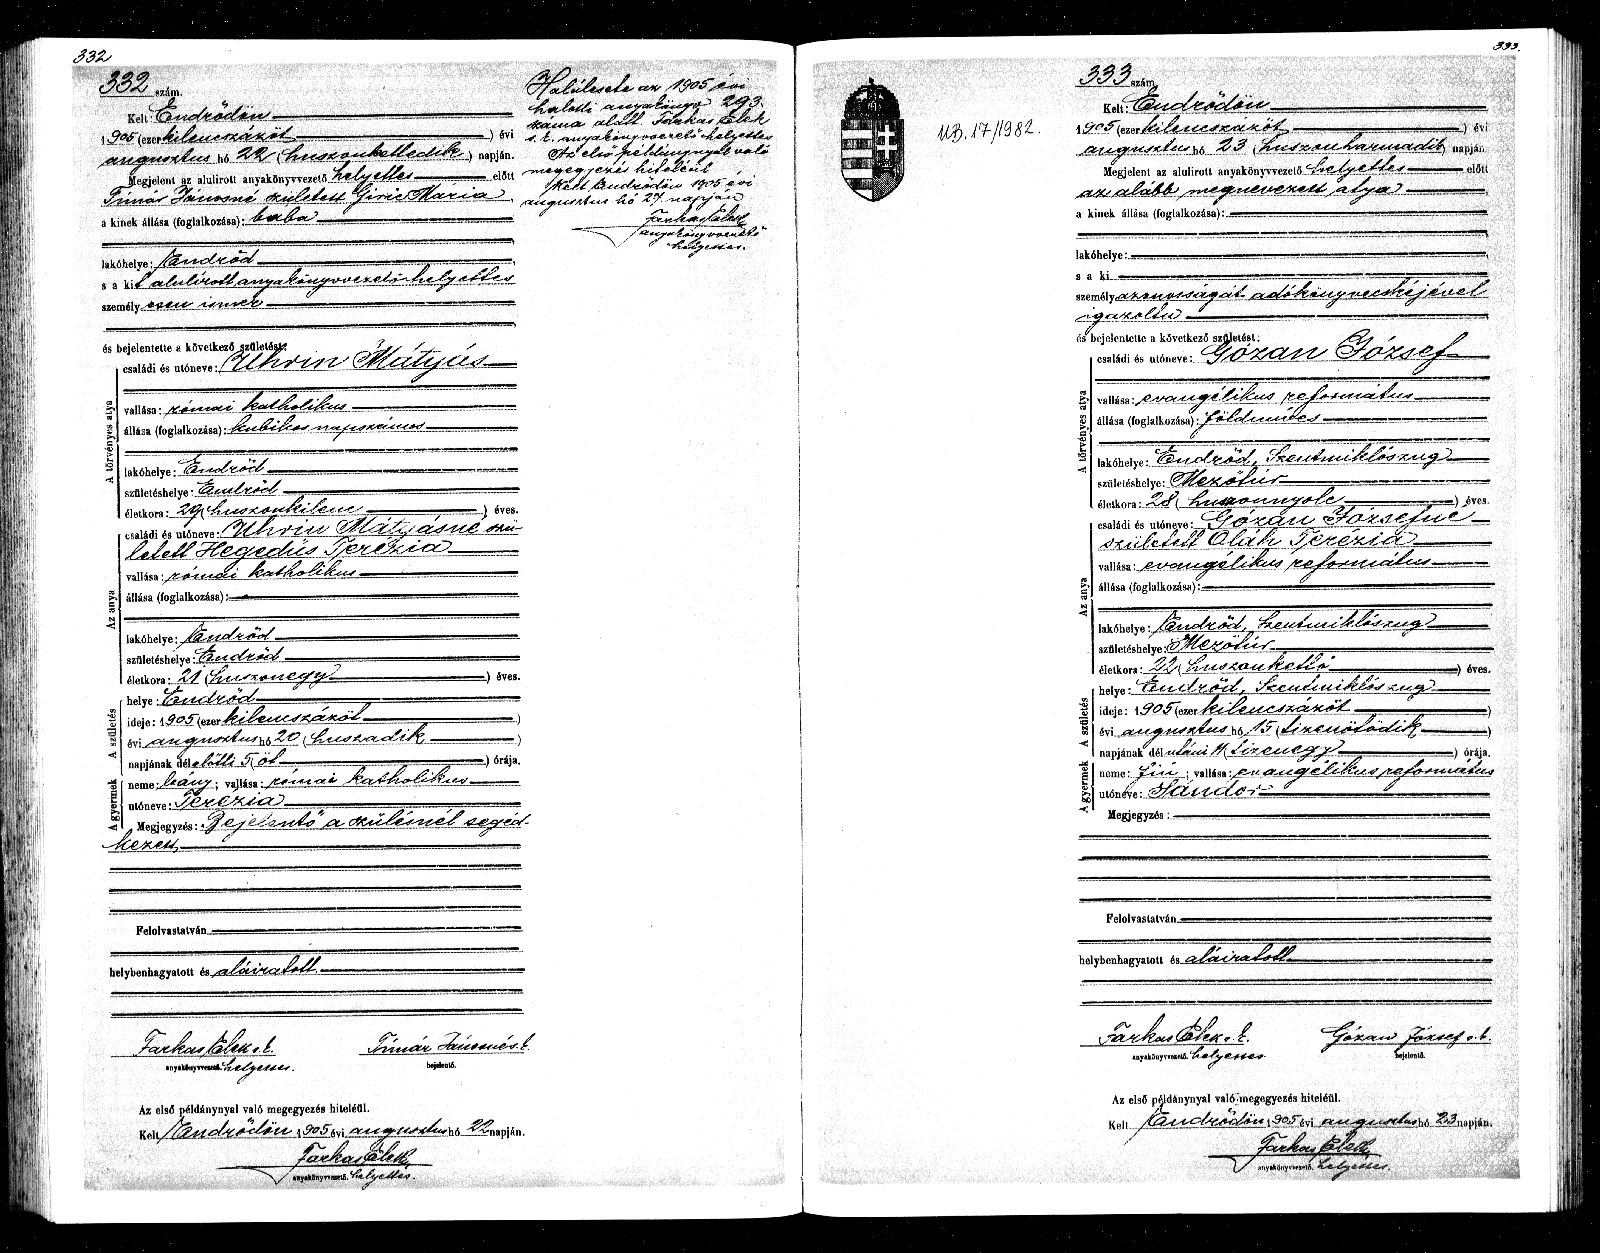 332
332 szám.
Kelt: Endrődön
1905 (ezer kilenczázöt) évi
augusztus hó 22 (huszonkettedik) napján.
Megjelent az alulirott anyakönyvvezető helyettes előtt
Tímár Jánosné született Giricz Mária
a kinek állása (foglalkozása): baba
lakóhelye: Endrőd
s a kit alulírott anyakönyvvezető helyettes
személyesen ismer
és bejelentette a következő születést:
A törvényes atya
családi és utóneve: Uhrin Mátyás
vallása: római katholikus
állása (foglalkozása): kubikos napszámos
lakóhelye: Endrőd
születéshelye: Endrőd
életkora: 29 (huszonkilenc) éves.
Az anya
családi és utóneve: Uhrin Mátyásné szü-
letett Hegedüs Terézia
vallása: római katholikus
állása (foglalkozása):
lakóhelye: Endrőd
születéshelye: Endrőd
életkora: 21 (huszonegy) éves.
A születés
helye: Endrőd
ideje: 1905 (ezer kilenczázöt)
évi augusztus hó 20 (huszadik)
napjának délelőtti 5 (öt) órája.
A gyermek
neme: leány; vallása: római katholikus
utóneve: Terézia
Megjegyzés: Bejelentő a szülésnél segéd-
kezett
Felolvastatván
helybenhagyatott és aláiratott
Farkas Elek s. k.
anyakönyvvezető helyettes.
Tímár Jánosné s. k.
bejelentő.
Az első példánynyal való megegyezés hiteléül.
Kelt Endrődön 1905 évi augusztus hó 22 napján.
Farkas Elek
anyakönyvvezető. helyettes.
Halálesete az 1905 évi
halotti anyakönyv 293.
száma alatt Farkas Elek
s. k. anyakönyvvezető helyettes
Az első példánynyal való
megegyezés hiteléül
Kelt Endrődön 1905 évi
augusztus hó 27. napján
Farkas Elek
anyakönyvvezető
helyettes.
333.
M.B. 17/1982.
333 szám.
Kelt: Endrődön
1905 (ezer kilenczázöt) évi
augusztus hó 23 (huszonharmadik) napján
Megjelent az alulirott anyakönyvvezető helyettes előtt
az alább megnevezett atya
a kinek állása (foglalkozása):
lakóhelye:
s a ki
személyazonosságát adókönyvecskéjével
igazolta
és bejelentette a következő születést:
A törvényes atya
családi és utóneve: Gózan József
vallása: evangélikus református
állása (foglalkozása): földmíves
lakóhelye: Endrőd, Szentmiklószug
születéshelye: Mezőtúr
életkora: 28 (huszonnyolc) éves.
Az anya
családi és utóneve: Gózan Józsefné
született Oláh Terézia
vallása: evangélikus református
állása (foglalkozása):
lakóhelye: Endrőd, Szentmiklószug
születéshelye: Mezőtúr
életkora: 22 (huszonkettő) éves.
A születés
helye: Endrőd, Szentmiklószug
ideje: 1905 (ezer kilenczázöt)
évi augusztus hó 15 (tizenötödik)
napjának délutáni 11 (tizenegy) órája.
A gyermek
neme: fiú; vallása: evangélikus református
utóneve: Sándor
Megjegyzés:
Felolvastatván
helybenhagyatott és aláiratott
Farkas Elek s. k.
anyakönyvvezető. helyettes
Gózan József s. k.
bejelentő.
Az első példánynyal való megegyezés hiteléül.
Kelt Endrődön 1905 évi augusztus hó 23 napján.
Farkas Elek
anyakönyvvezető. helyettes.